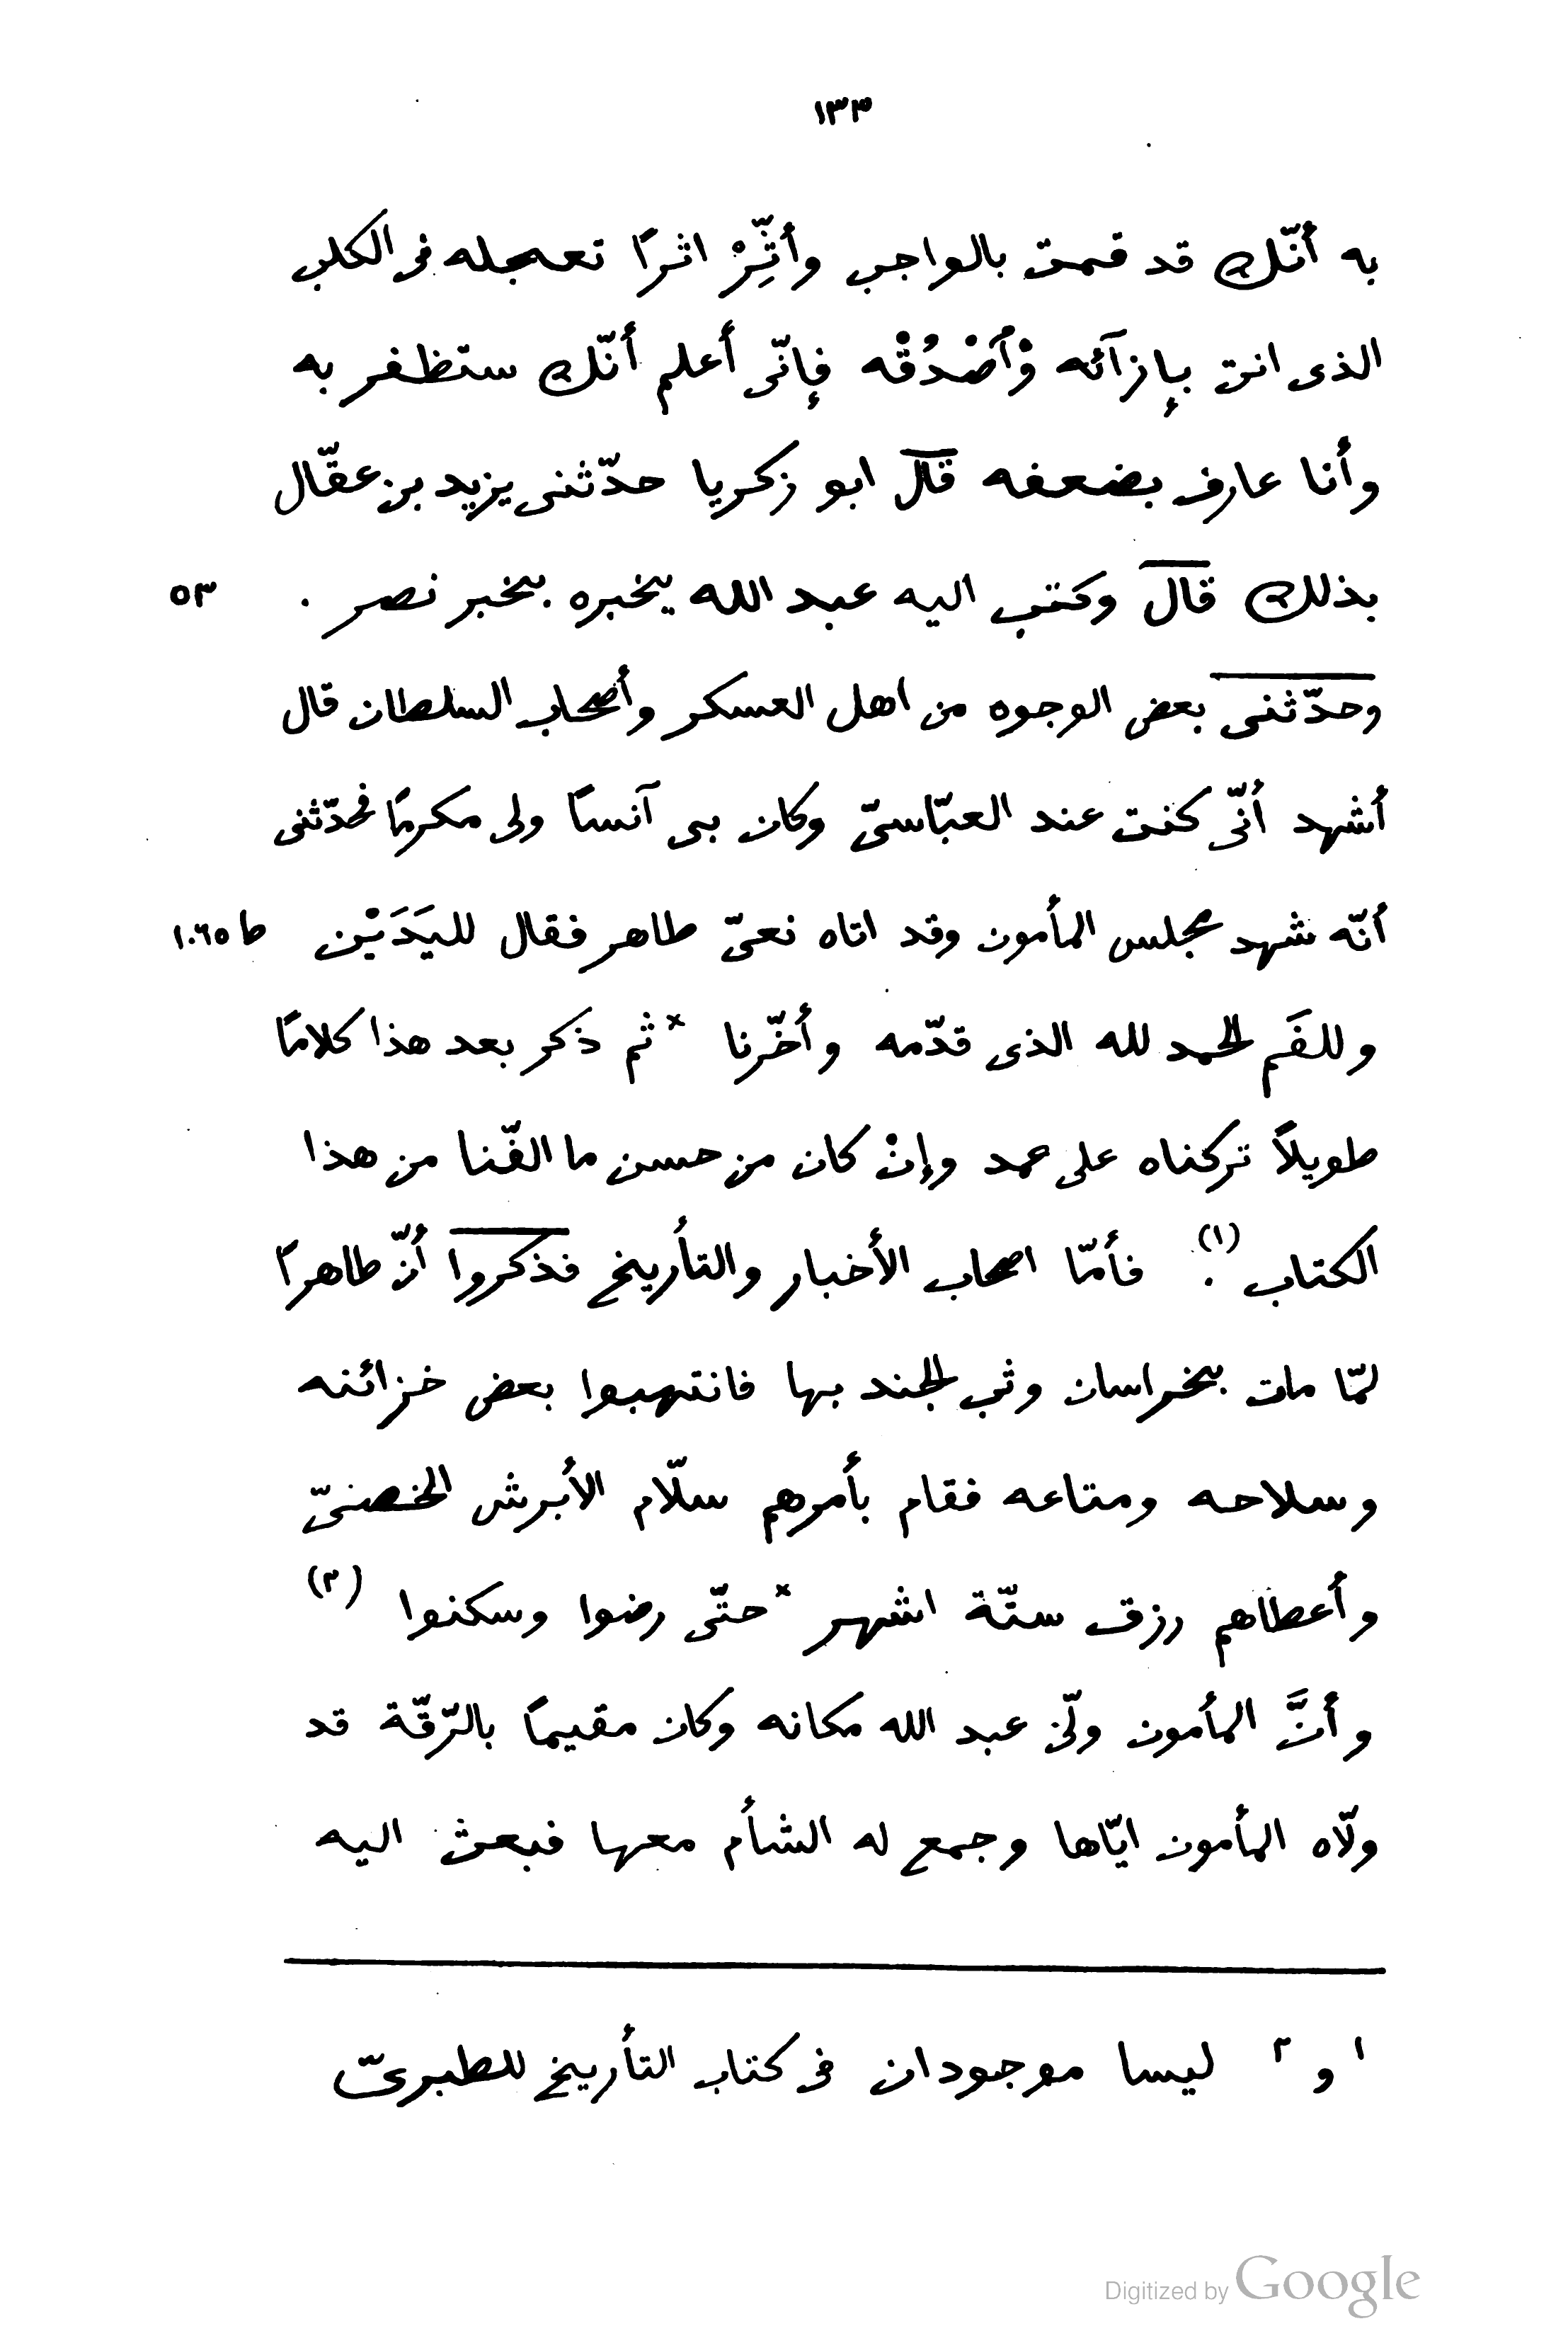 ١٣٣
به أنّك قد قمت بالواجب وأثِّرْ اثرًا تعجله فى الكلب
الذى انت بإزآئه وْأصْدُقْه فإنّى أعلم أنّك ستظفر به
وأنا عارف بضعفه قال ابو زكريا حدّثنى يزيد بن عقّال
بذلك قال وكتب اليه عبد الله يخبره بخبر نصر . ٥٣
وحدّثنى بعض الوجوه من اهل العسكر وأصحاب السلطان قال
أشهد أنّى كنت عند العبّاسىّ وكان بى آنسًا ولى مكرمًا فحدّثنى
أنّه شهد مجلس المأمون وقد اتاه نعىّ طاهر فقال لليَدَيْن ط ١٠٦٥
وللفَم الحمد لله الذى قدّمه وأخّرنا * ثم ذكر بعد هذا كلامًا
طويلاً تركناه على عمد وإنْ كان من حسن ما الفّنا من هذا
الكتاب (١) . فأمّا اصحاب الأخبار والتأريخ فذكروا أنّ طاهرًا
لمّا مات بخراسان وثب الجند بها فانتهبوا بعض خزائنه
وسلاحه ومتاعه فقام بأمرهم سلّام الأبرش الخصنىّ
وأعطاهم رزق ستّة اشهر * حتّى رضوا وسكنوا (٢)
وأنَّ المأمون ولّى عبد الله مكانه وكان مقيمًا بالرّقّة قد
ولّاه المأمون ايّاها وجمع له الشأم معها فبعث اليه
١ و ٢ ليسا موجودان فى كتاب التأريخ للطبرىّ
Digitized by Google